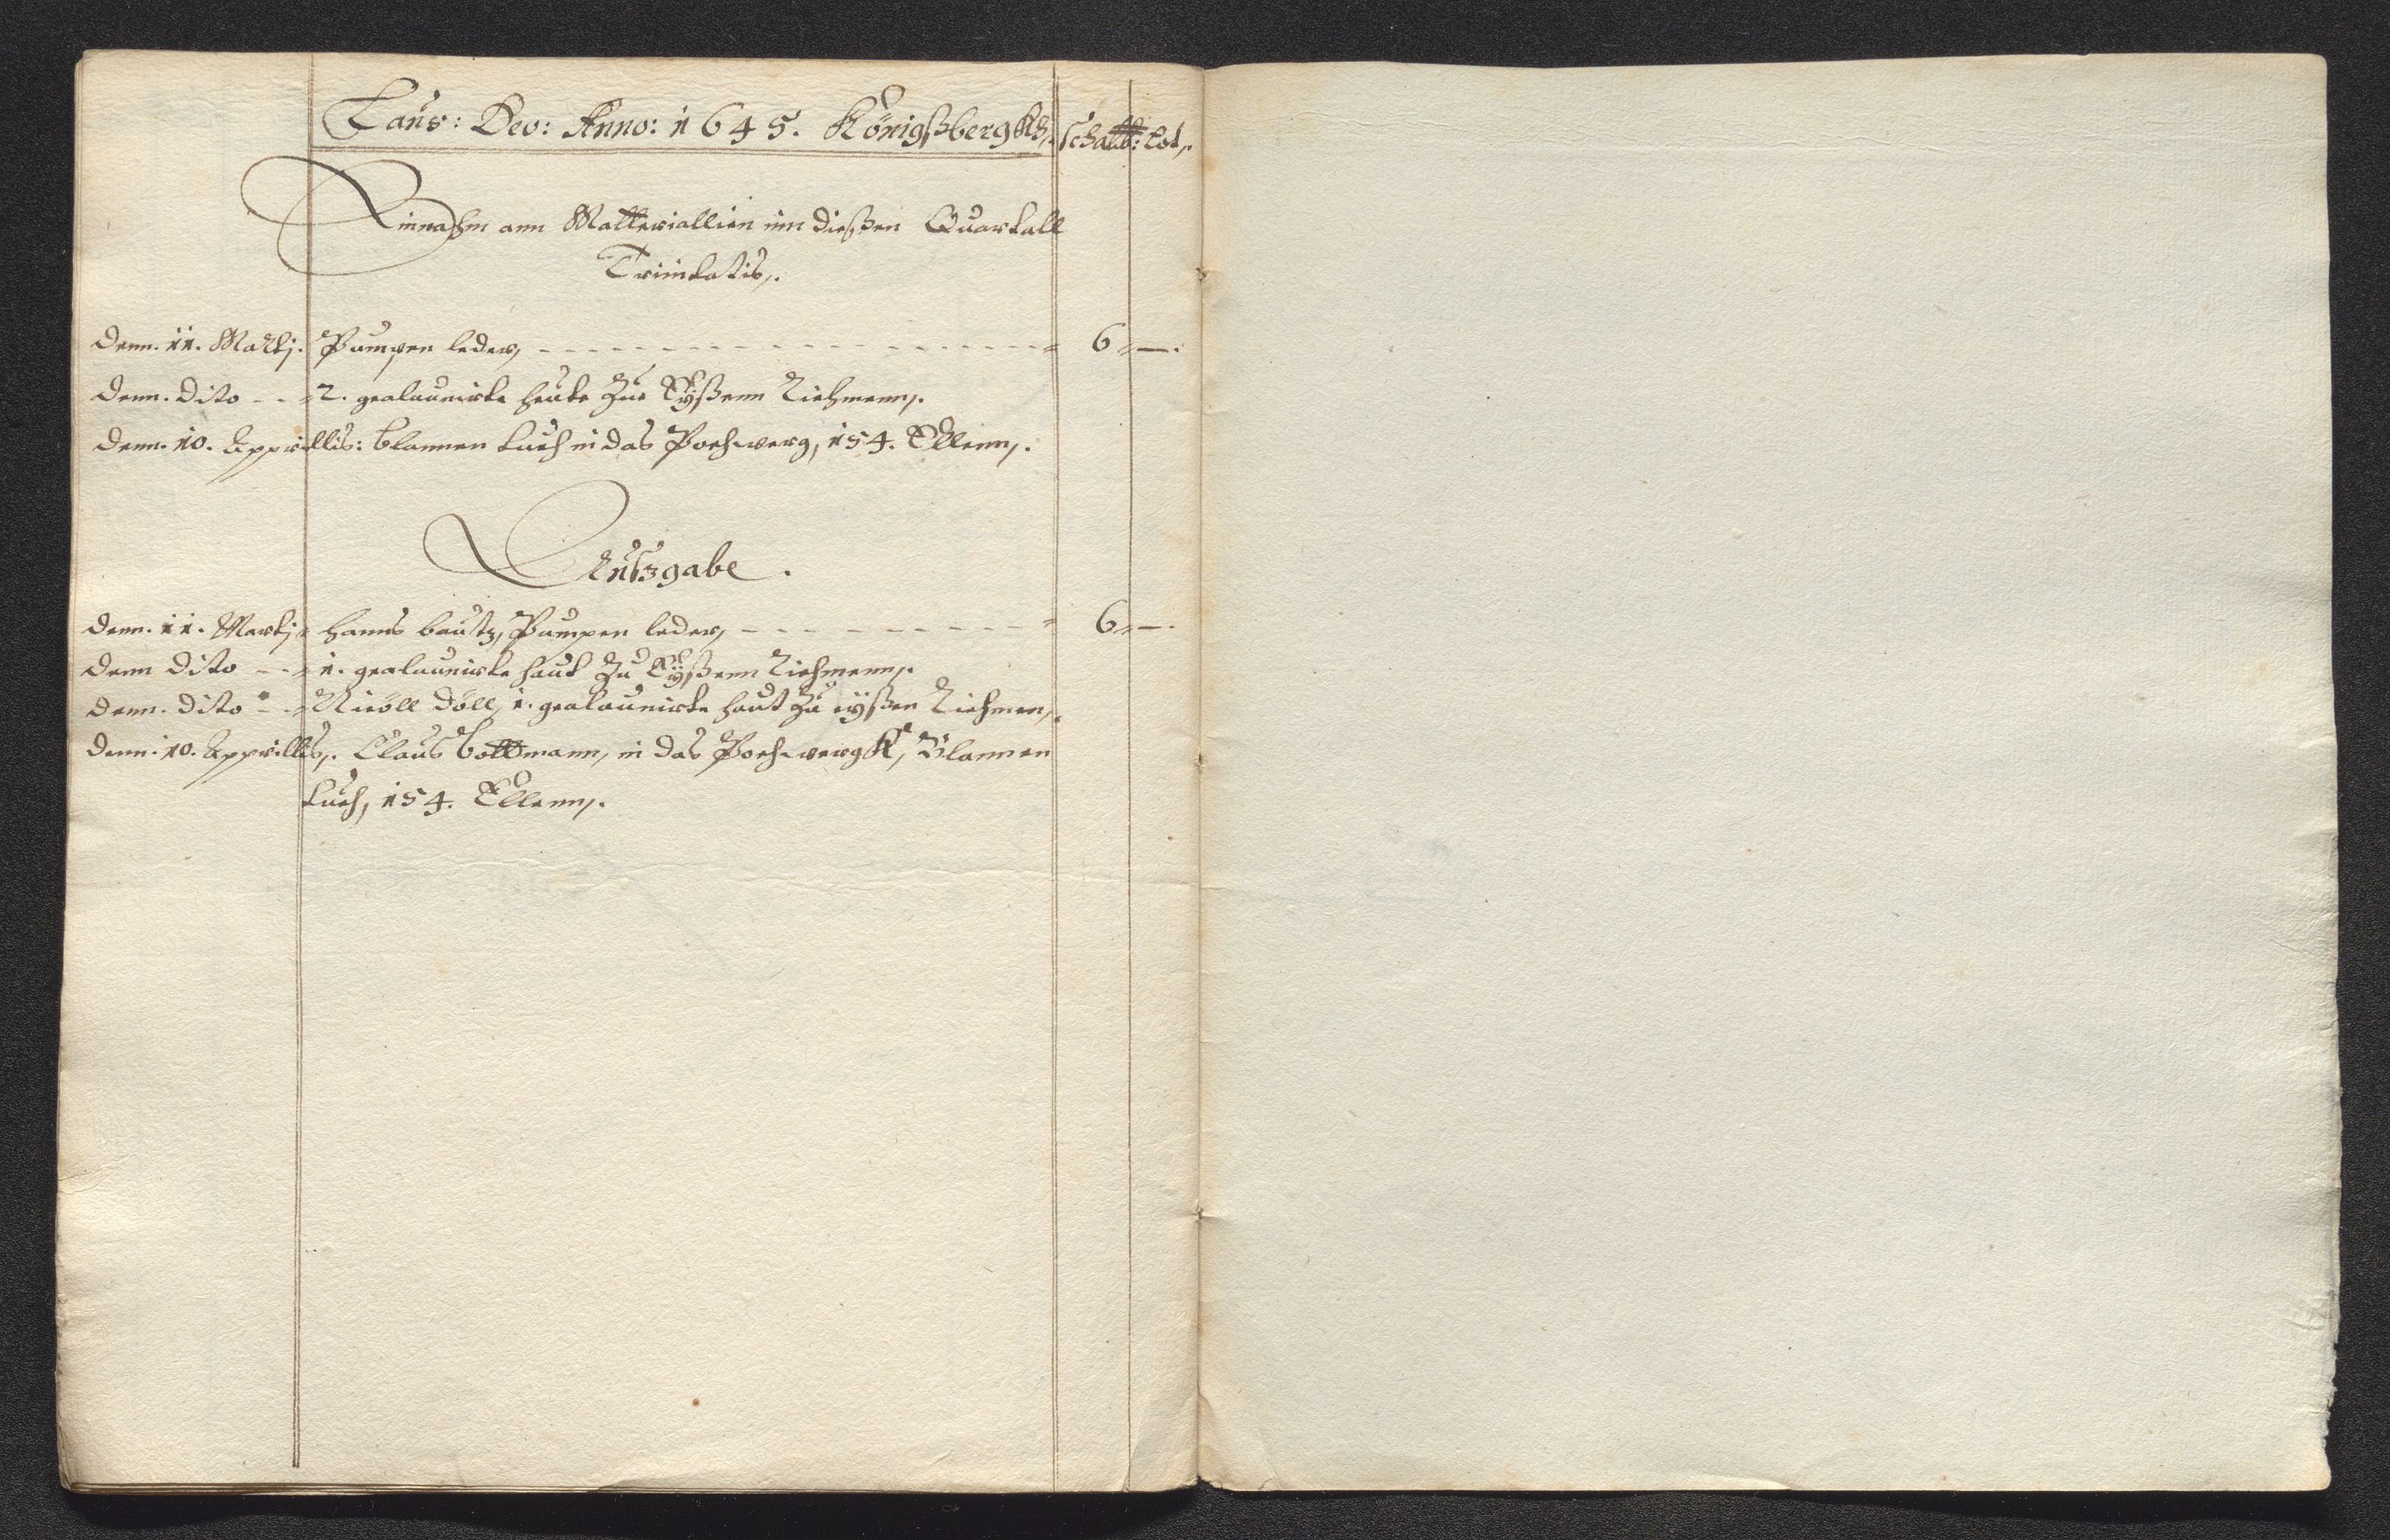 Laus: Deo: Anno: 1645. Königßbergkh,. schalb: Lot,.
Einnahm ann Matteriallien inn dießen Quartall
Trinitatis,.
Denn. 11. Martj. Pumpen leder, - - - - 6 〃 —.
Denn. Dito - - 2. gealaunirte heute zue Kÿßenn Riehmenn,.
Denn. 10. Apprillis: blannen tuch in das Pochwerg, 154. Ellenn,.
Ausgabe.
Denn. 11. Martj 〃 hanns bautz, Pumpen leder, - - - - 6 〃 —.
Denn Dito - - 1. gealaunirte haut zu Kÿßenn Riehmenn,.
Denn. Dito - - Nicöll Döll, 1. gealaunirte haut zu Kÿßen Riehmen,.
Denn. 10. Apprillis,. Claus bottmann, in das Pochwergk, Blannen
tuch, 154. Ellenn,.